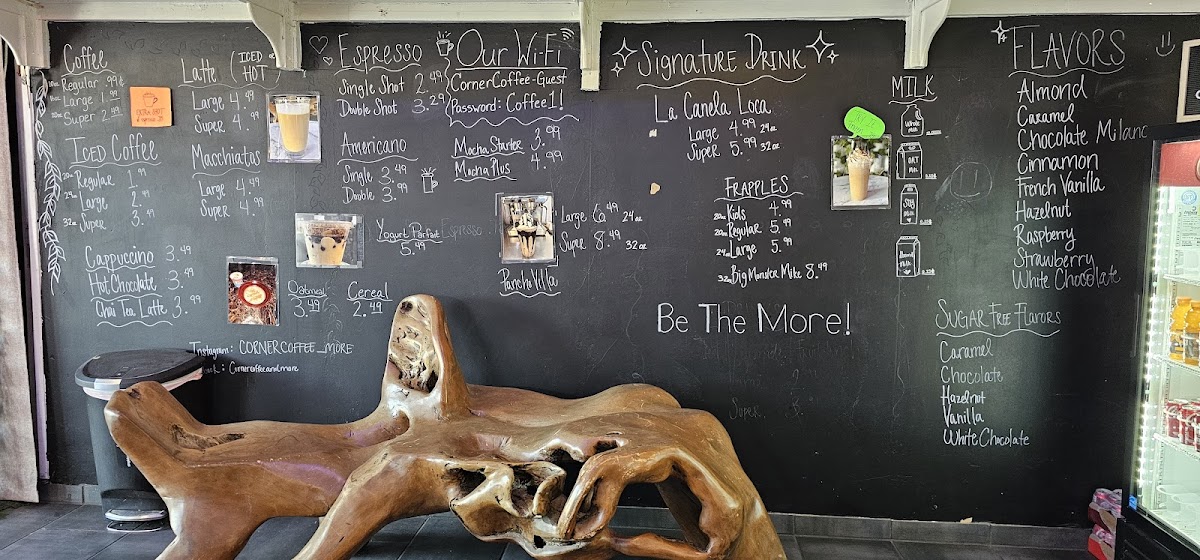 Coffee
Regular .99¢
Large 1.99
Super 2.99
Iced Coffee
Regular 1.99
Large 2.99
32oz Super 3.49
Cappuccino 3.49
Hot Chocolate 3.49
Chai Tea Latte 3.99
Latte (ICED HOT)
Large 4.49
Super 4.99
Macchiatos
Large 4.49
Super 4.99
Oatmeal
3.49
Cereal
2.49
Instagram: CORNERCOFFEE_MORE
Cornercoffeeandmore
Espresso
Single Shot 2.49
Double Shot 3.29
Americano
Single 3.49
Double 3.99
Yogurt Parfait
5.49
Our Wi-Fi
CornerCoffee-Guest
Password: Coffee1!
Mocha Starter 3.99
Mocha Plus 4.99
Large 6.49 24oz
Super 8.49 32oz
Pancho Villa
Signature Drink
La Canela Loca
Large 4.99 24oz
Super 5.99 32oz
Frapples
20oz Kids 4.99
20oz Regular 5.49
24oz Large 5.99
32oz Big Monster Mike 8.49
Be The More!
MILK
Whole Milk
OAT Milk
Soy Milk
Almond Milk
FLAVORS
Almond
Caramel
Chocolate Milano
Cinnamon
French Vanilla
Hazelnut
Raspberry
Strawberry
White Chocolate
Sugar Free Flavors
Caramel
Chocolate
Hazelnut
Vanilla
White Chocolate